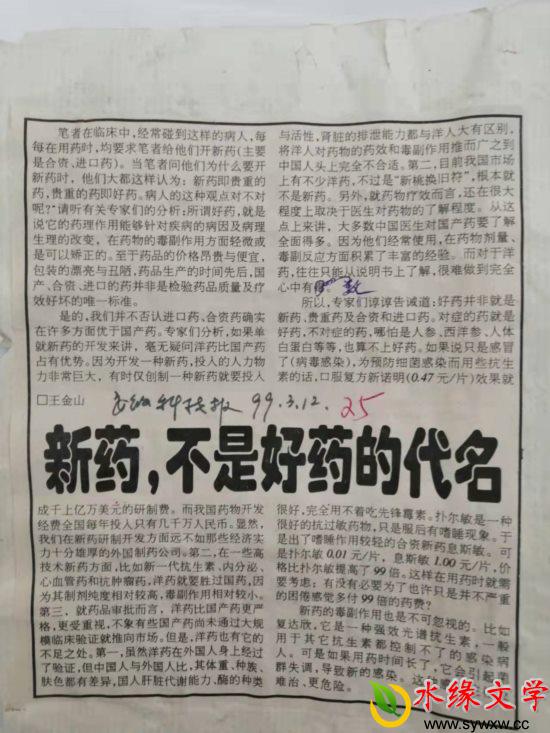 新药，不是好药的代名
□王金山
99.3.12.
25
笔者在临床中，经常碰到这样的病人，每
每在用药时，均要求笔者给他们开新药（主要
是合资、进口药）。当笔者问他们为什么要开
新药时，他们大都这样认为：新药即贵重的
药，贵重的药即好药。病人的这种观点对不对
呢？请听有关专家们的分析：所谓好药，就是
说它的药理作用能够针对疾病的病因及病理
生理的改变，在药物的毒副作用方面轻微或
是可以矫正的。至于药品的价格昂贵与便宜，
包装的漂亮与丑陋，药品生产的时间先后，国
产、合资、进口的药并非是检验药品质量及疗
效好坏的唯一标准。
是的，我们并不否认进口药、合资药确实
在许多方面优于国产药。专家们分析，如果单
就新药的开发来讲，毫无疑问洋药比国产药
占有优势。因为开发一种新药，投入的人力物
力非常巨大，有时仅创制一种新药就要投入
成千上亿万美元的研制费。而我国药物开发
经费全国每年投入只有几千万人民币。显然，
我们在新药研制开发方面远不如那些经济实
力十分雄厚的外国制药公司。第二，在一些高
技术新药方面，比如新一代抗生素、内分泌、
心血管药和抗肿瘤药，洋药就要胜过国药，因
为其制剂纯度相对较高，毒副作用相对较小。
第三，就药品审批而言，洋药比国产药更严
格，更受重视，不象有些国产药尚未通过大规
模临床验证就推向市场。但是，洋药也有它的
不足之处。第一，虽然洋药在外国人身上经过
了验证，但中国人与外国人比，其体重、种族、
肤色都有差异，国人肝脏代谢能力、酶的种类
与活性，肾脏的排泄能力都与洋人大有区别，
将洋人对药物的药效和毒副作用推而广之到
中国人头上完全不合适。第二，目前我国市场
上有不少洋药，不过是“新桃换旧符”，根本就
不是新药。另外，就药物疗效而言，还在很大
程度上取决于医生对药物的了解程度。从这
点上来讲，大多数中国医生对国产药要了解
全面得多。因为他们经常使用，在药物剂量、
毒副反应方面积累了丰富的经验。而对于洋
药，往往只能从说明书上了解，很难做到完全
心中有数
所以，专家们谆谆告诫道：好药并非就是
新药、贵重药及合资和进口药。对症的药就是
好药，不对症的药，哪怕是人参、西洋参、人体
白蛋白等等，也算不上好药。如果说只是感冒
了（病毒感染），为预防细菌感染而用些抗生
素的话，口服复方新诺明（0.47元/片）效果就
很好，完全用不着吃先锋霉素。扑尔敏是一种
很好的抗过敏药物，只是服后有嗜睡现象。于
是出了嗜睡作用较轻的合资新药息斯敏。可
是扑尔敏0.01元/片，息斯敏1.00元/片，价
格比扑尔敏提高了99倍。这样在用药时就需
要考虑：有没有必要为了也许只是并不严重
的困倦感觉多付99倍的药费？
新药的毒副作用也是不可忽视的。比如
复达欣，它是一种强效光谱抗生素，一般
用于其它抗生素都控制不了的感染病
人。可是如果用药时间长了，它会引起菌
群失调，导致新的感染。这种感染
难治、更危险。
水缘文学
www.sywxw.com